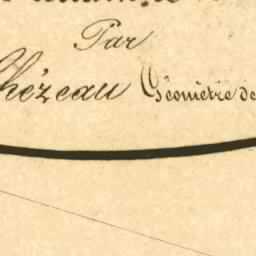 Par
Chézeau Géomètre de